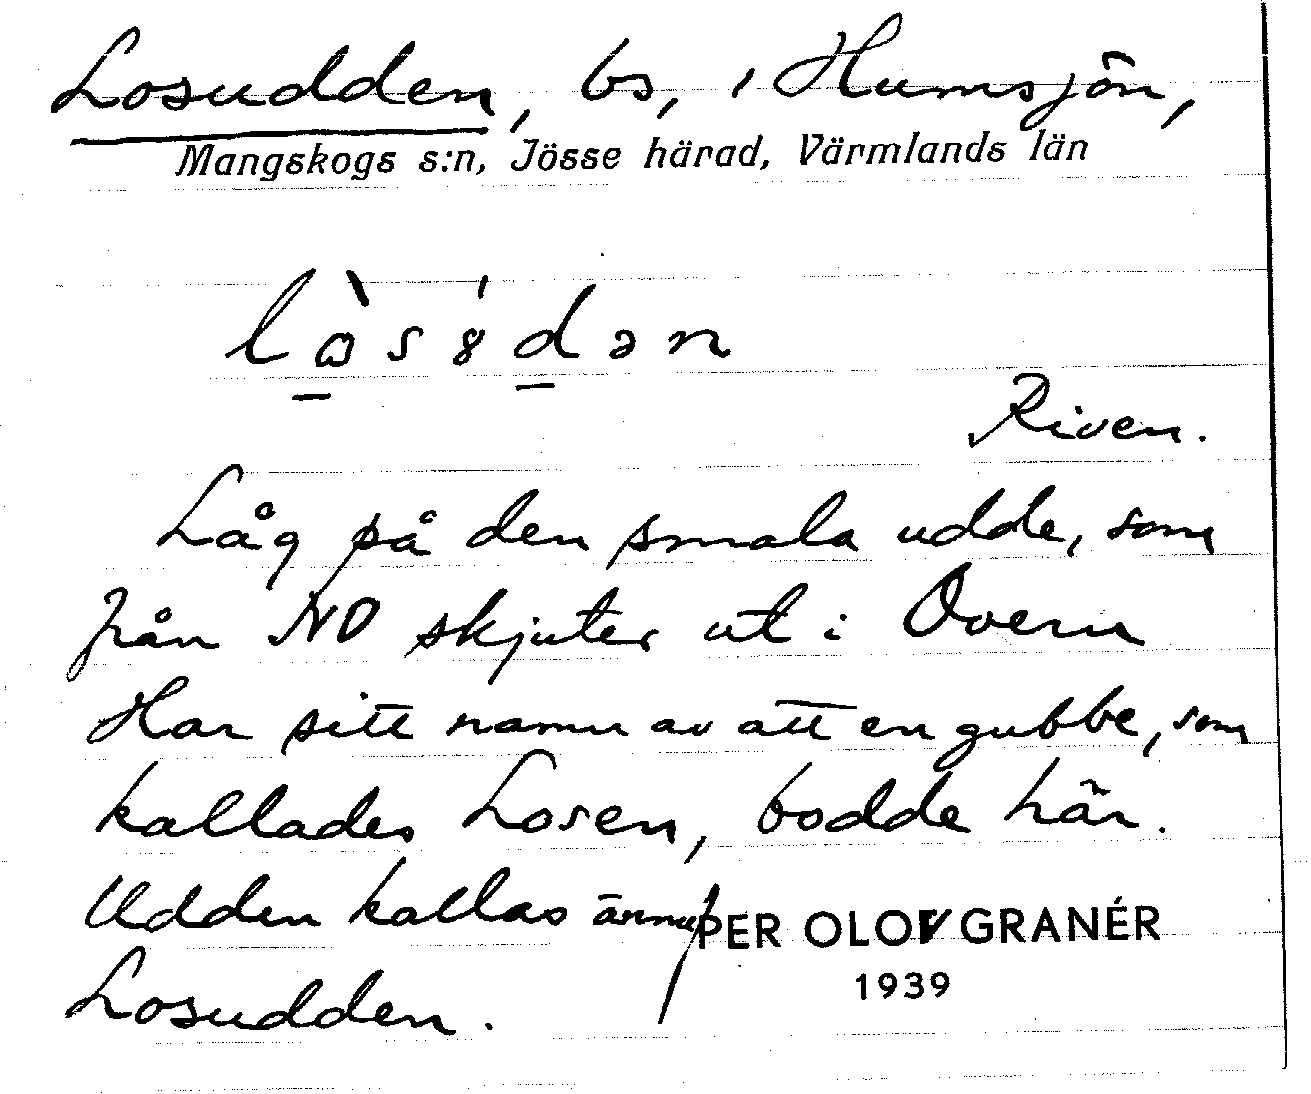 Losudden, bs, i Humsjön,
Mangskogs s:n, Jösse härad, Värmlands län
Riven.
Låg på den smala udde, som
från NO skjuter ut i Övern
Har sitt namn av att en gubbe, som
kallades Losen, bodde här.
Udden kallas ännu
Losudden.
PER OLOV GRANÉR
1939